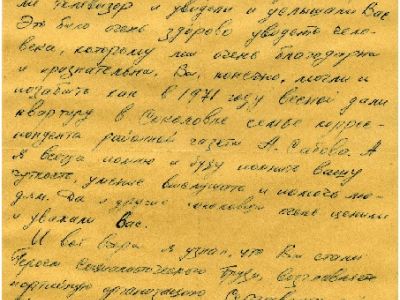 ли телевизор и увидели и услышали Вас
Это было очень здорово увидеть чело-
века, которому мы очень благодарны
и признательны. Вы, конечно, могли и
позабыть как в 1971 году весной дали
квартиру в Соколовке семье коррес-
пондента районной газеты А. А
Я всегда помню и буду помнить вашу
чуткость, умение выслушать и помочь лю-
дям. Да и другие очень ценили
и уважали Вас.
И вот вчера я узнал, что Вы стали
Героем Социалистического Труда, возглавляете
партийную организацию